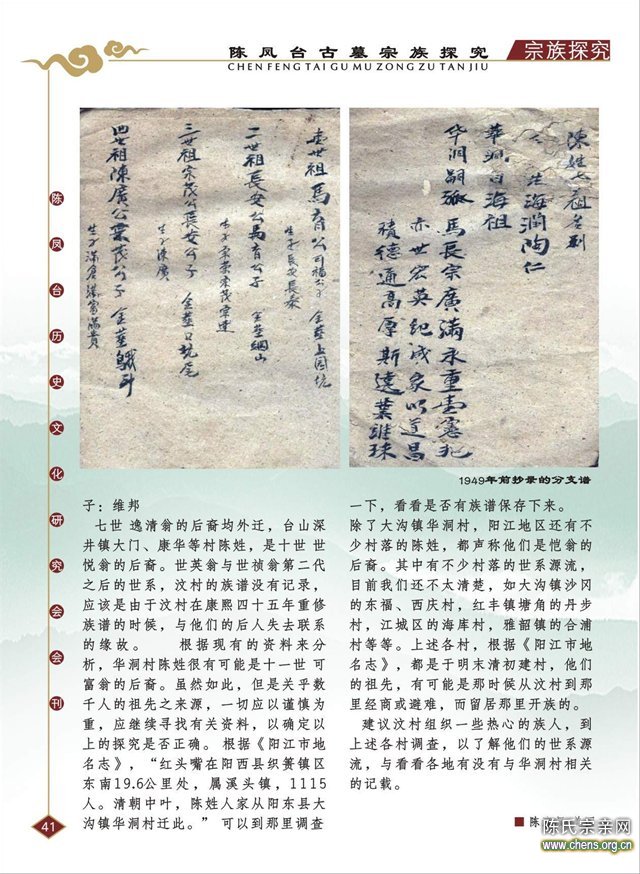 陈凤台古墓宗族探究
CHEN FENG TAI GU MU ZONG ZU TAN JIU
宗族探究
陈凤台历史文化研究会会刊
陳姓七祖名列
海润陶仁
華洞日海祖
华洞嗣孤
馬長宗廣滿永重
亦世宏英纪成象以道昌
積德通高厚斯遠葉維球
壹世祖馬育公
生子長安長泰
二世祖長安公馬育公子
三世祖宗茂公長安公子
生子陳廣
四世祖陳廣公業茂公子
1949年前抄录的分支谱
子：维邦
七世 逸清翁的后裔均外迁，台山深
井镇大门、康华等村陈姓，是十世 世
悦翁的后裔。世英翁与世桢翁第二代
之后的世系，汶村的族谱没有记录，
应该是由于汶村在康熙四十五年重修
族谱的时候，与他们的后人失去联系
的缘故。 根据现有的资料来分
析，华洞村陈姓很有可能是十一世 可
富翁的后裔。虽然如此，但是关乎数
千人的祖先之来源，一切应以谨慎为
重，应继续寻找有关资料，以确定以
上的探究是否正确。 根据《阳江市地
名志》，“红头嘴在阳西县织篢镇区
东南19.6公里处，属溪头镇，1115
人。清朝中叶，陈姓人家从阳东县大
沟镇华洞村迁此。” 可以到那里调查
一下，看看是否有族谱保存下来。
除了大沟镇华洞村，阳江地区还有不
少村落的陈姓，都声称他们是恺翁的
后裔。其中有不少村落的世系源流，
目前我们还不太清楚，如大沟镇沙冈
的东福、西庆村，红丰镇塘角的丹步
村，江城区的海库村，雅韶镇的合浦
村等等。上述各村，根据《阳江市地
名志》，都是于明末清初建村，他们
的祖先，有可能是那时候从汶村到那
里经商或避难，而留居那里开族的。
建议汶村组织一些热心的族人，到
上述各村调查，以了解他们的世系源
流，与看看各地有没有与华洞村相关
的记载。
41
■ 陈
陈氏宗亲网
www.chens.org.cn